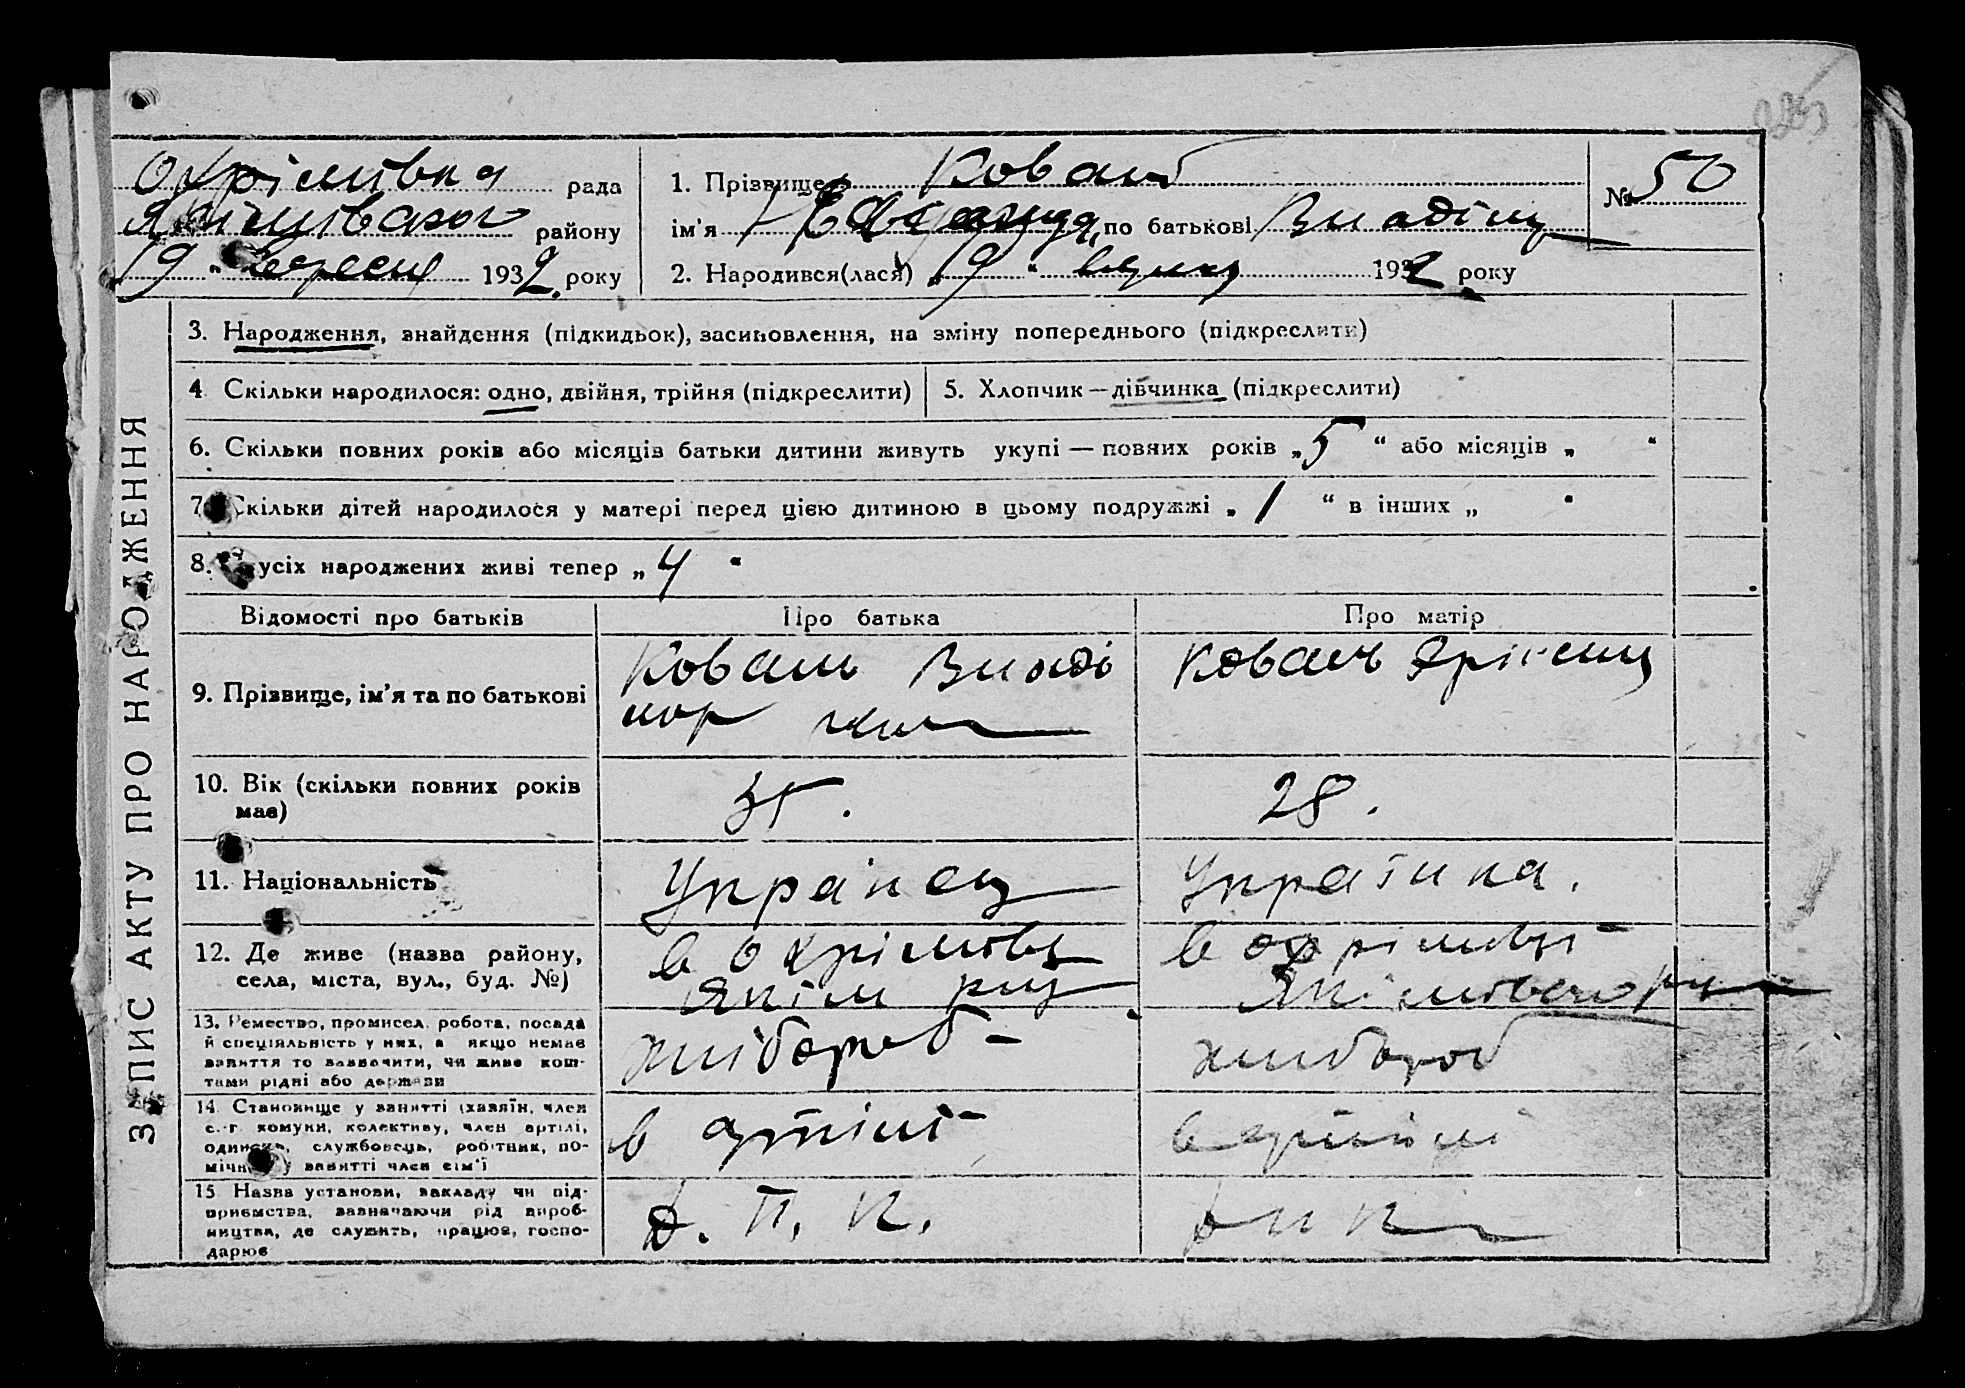 Охрімівка рада
Якимівського району
19 " вересня 1932 року
1. Прізвище Коваль
ім'я по батькові Владім
2. Народився(лася) 19 " вересня 1932 року
№ 50
ЗАПИС АКТУ ПРО НАРОДЖЕННЯ
3. Народження, знайдення (підкидьок), засиновлення, на зміну попереднього (підкреслити)
4. Скільки народилося: одно, двійня, трійня (підкреслити)
5. Хлопчик — дівчинка (підкреслити)
6. Скільки повних років або місяців батьки дитини живуть укупі — повних років „5“ або місяців „ “
7. Скільки дітей народилося у матері перед цією дитиною в цьому подружжі „1“ в інших „ “
8. усіх народжених живі тепер „4“
Відомості про батьків
Про батька
Про матір
9. Прізвище, ім'я та по батькові
Коваль Владі
мир
Коваль
10. Вік (скільки повних років
має)
35.
28.
11. Національність
Українец
Українка.
12. Де живе (назва району,
села, міста, вул., буд. №)
в Охрімовц
Якім рну
в Охрімовці
Якімовсого рну
13. Ремество, промисел, робота, посада
й спеціяльність у них, а якщо немає
заняття то зазначити, чи живе кош-
тами рідні або держави
хлібороб
хлібороб
14. Становище у занятті (хазяїн, член
с.-г. комуни, колективу, член артілі,
одинак, службовець, робітник, по-
мічн у занятті член сім'ї
в артілі
в артілі
15. Назва установи, закладу чи під-
приємства, зазначаючи рід вироб-
ництва, де служить, працює, госпо-
дарює
Д. П. К.